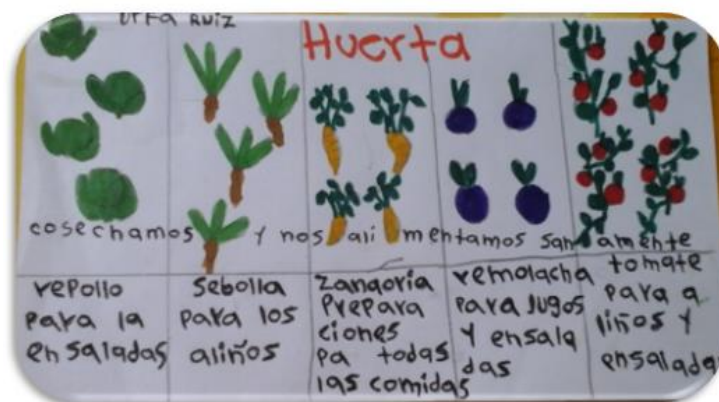 Urfa Ruiz
Huerta
cosechamos y nos alimentamos sanamente
repollo
para la
ensaladas
sebolla
para los
aliños
zanaoria
Prepara
ciones
pa todas
las comidas
remolacha
para Jugos
y ensala
das
tomate
para a
liños y
ensaladas